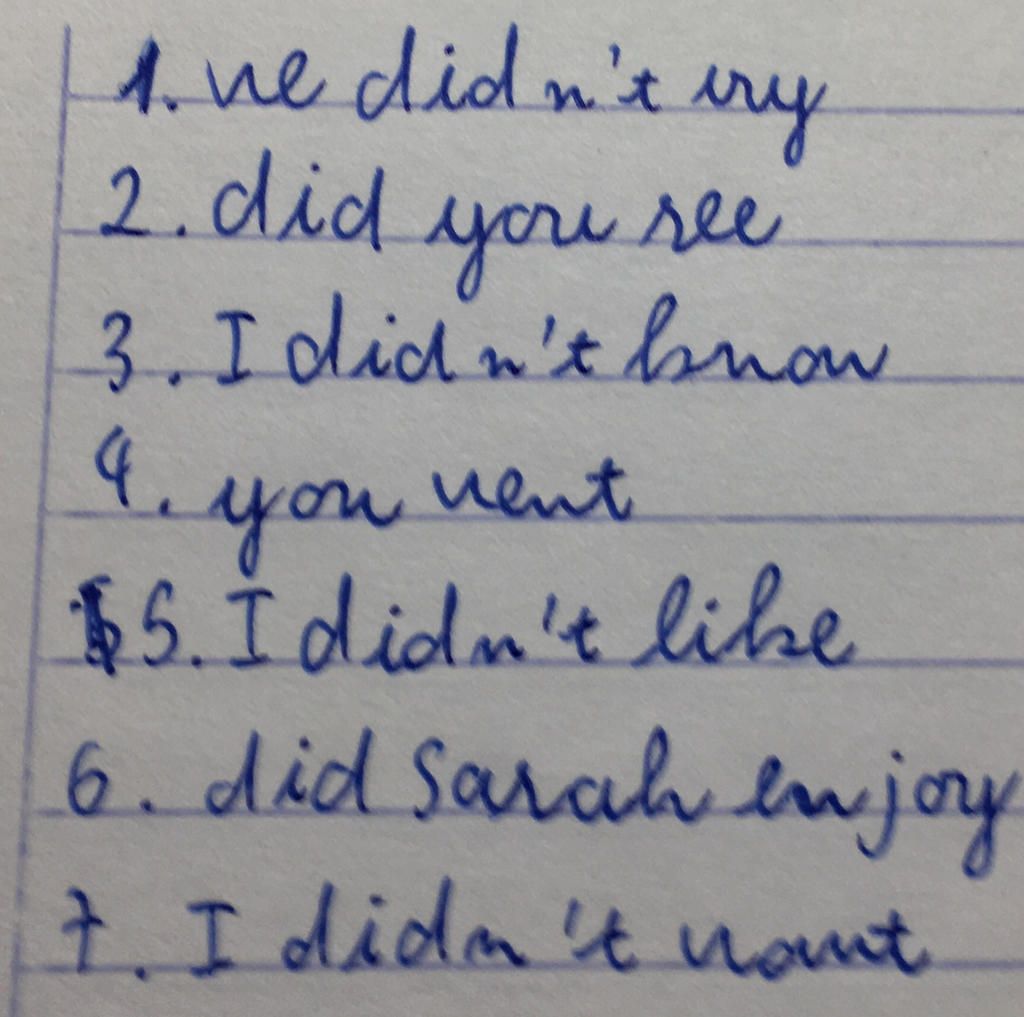 1. we didn't try
2. did you see
3. I didn't know
4. you went
5. I didn't like
6. did Sarah enjoy
7. I didn't want